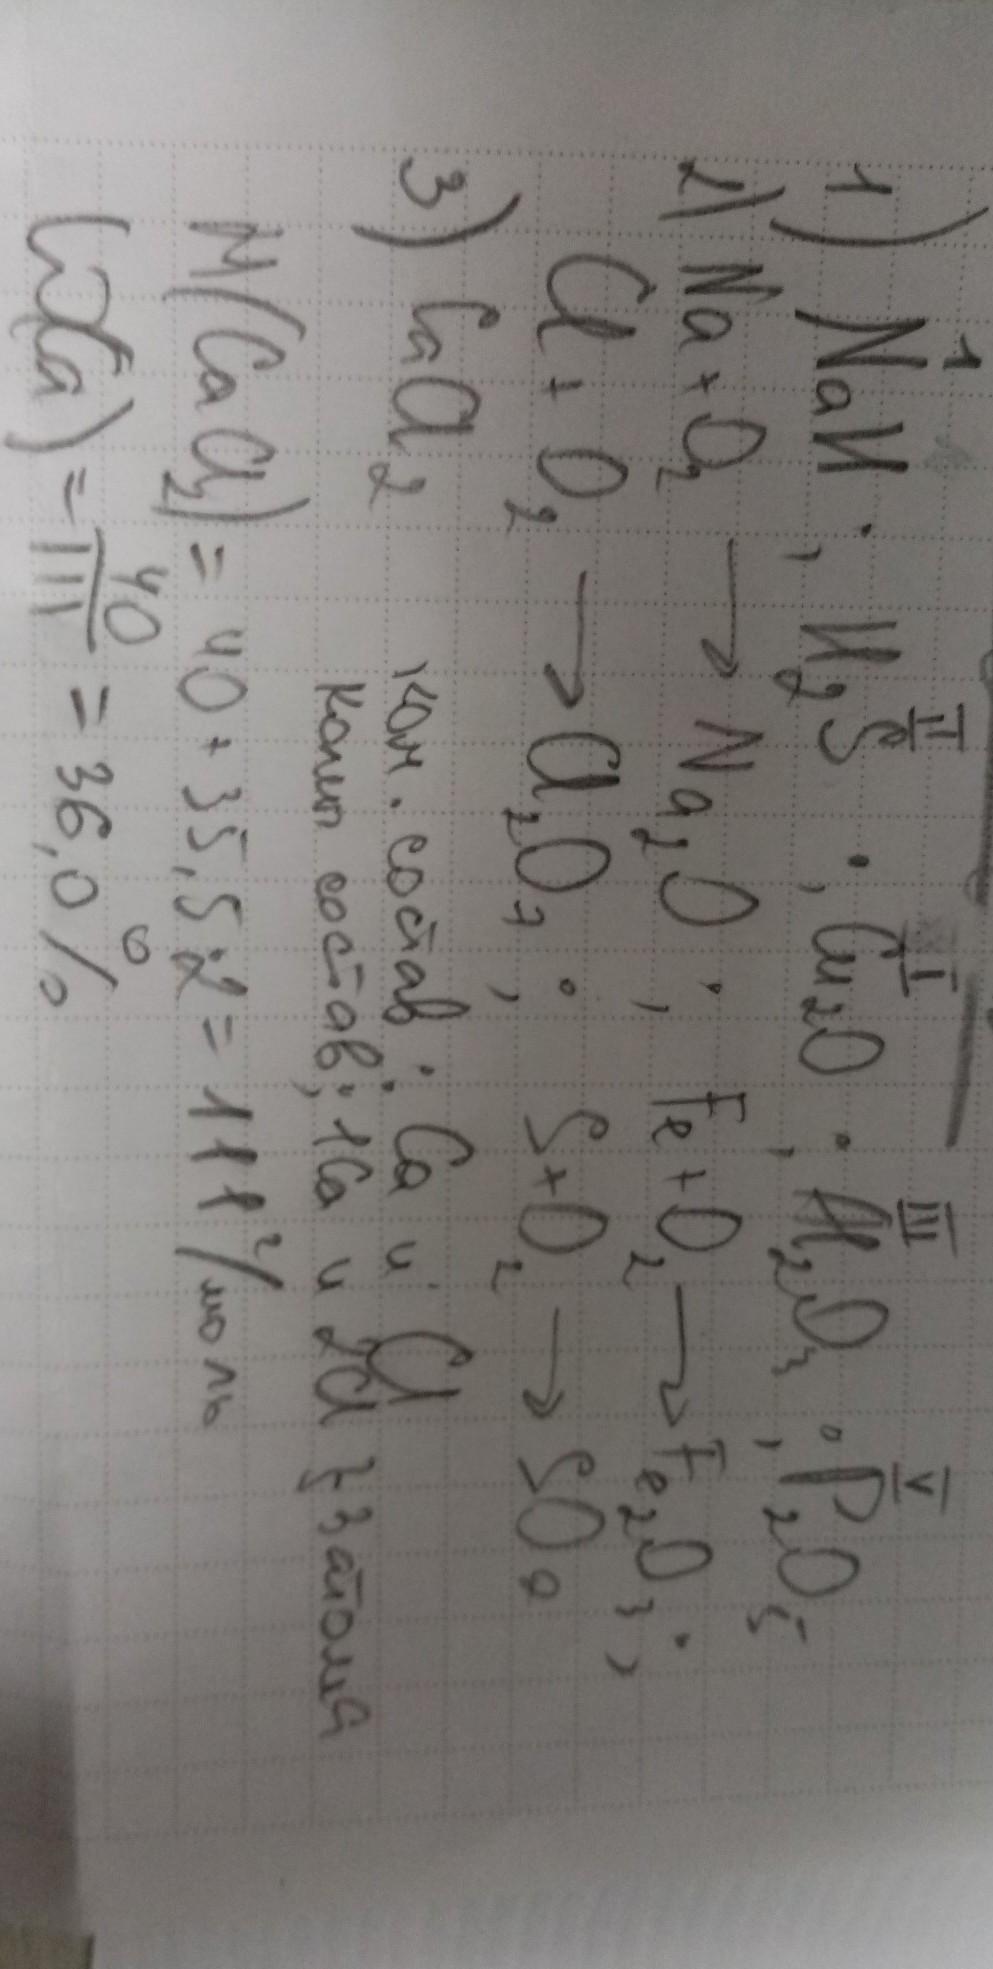 1) NaH; H₂S; Cu₂O; Al₂O₃; P₂O₅
1 II I III V
2) Na + O₂ → Na₂O; Fe + O₂ → Fe₂O₃;
Cl + O₂ → Cl₂O₇; S + O₂ → SO₂
3) CaCl₂ кач. состав: Ca и Cl
колич состав: 1Ca и 2Cl } 3 атома
M(CaCl₂) = 40 + 35,5·2 = 111 г/моль
ω(Ca) = 40/111 = 36,0%